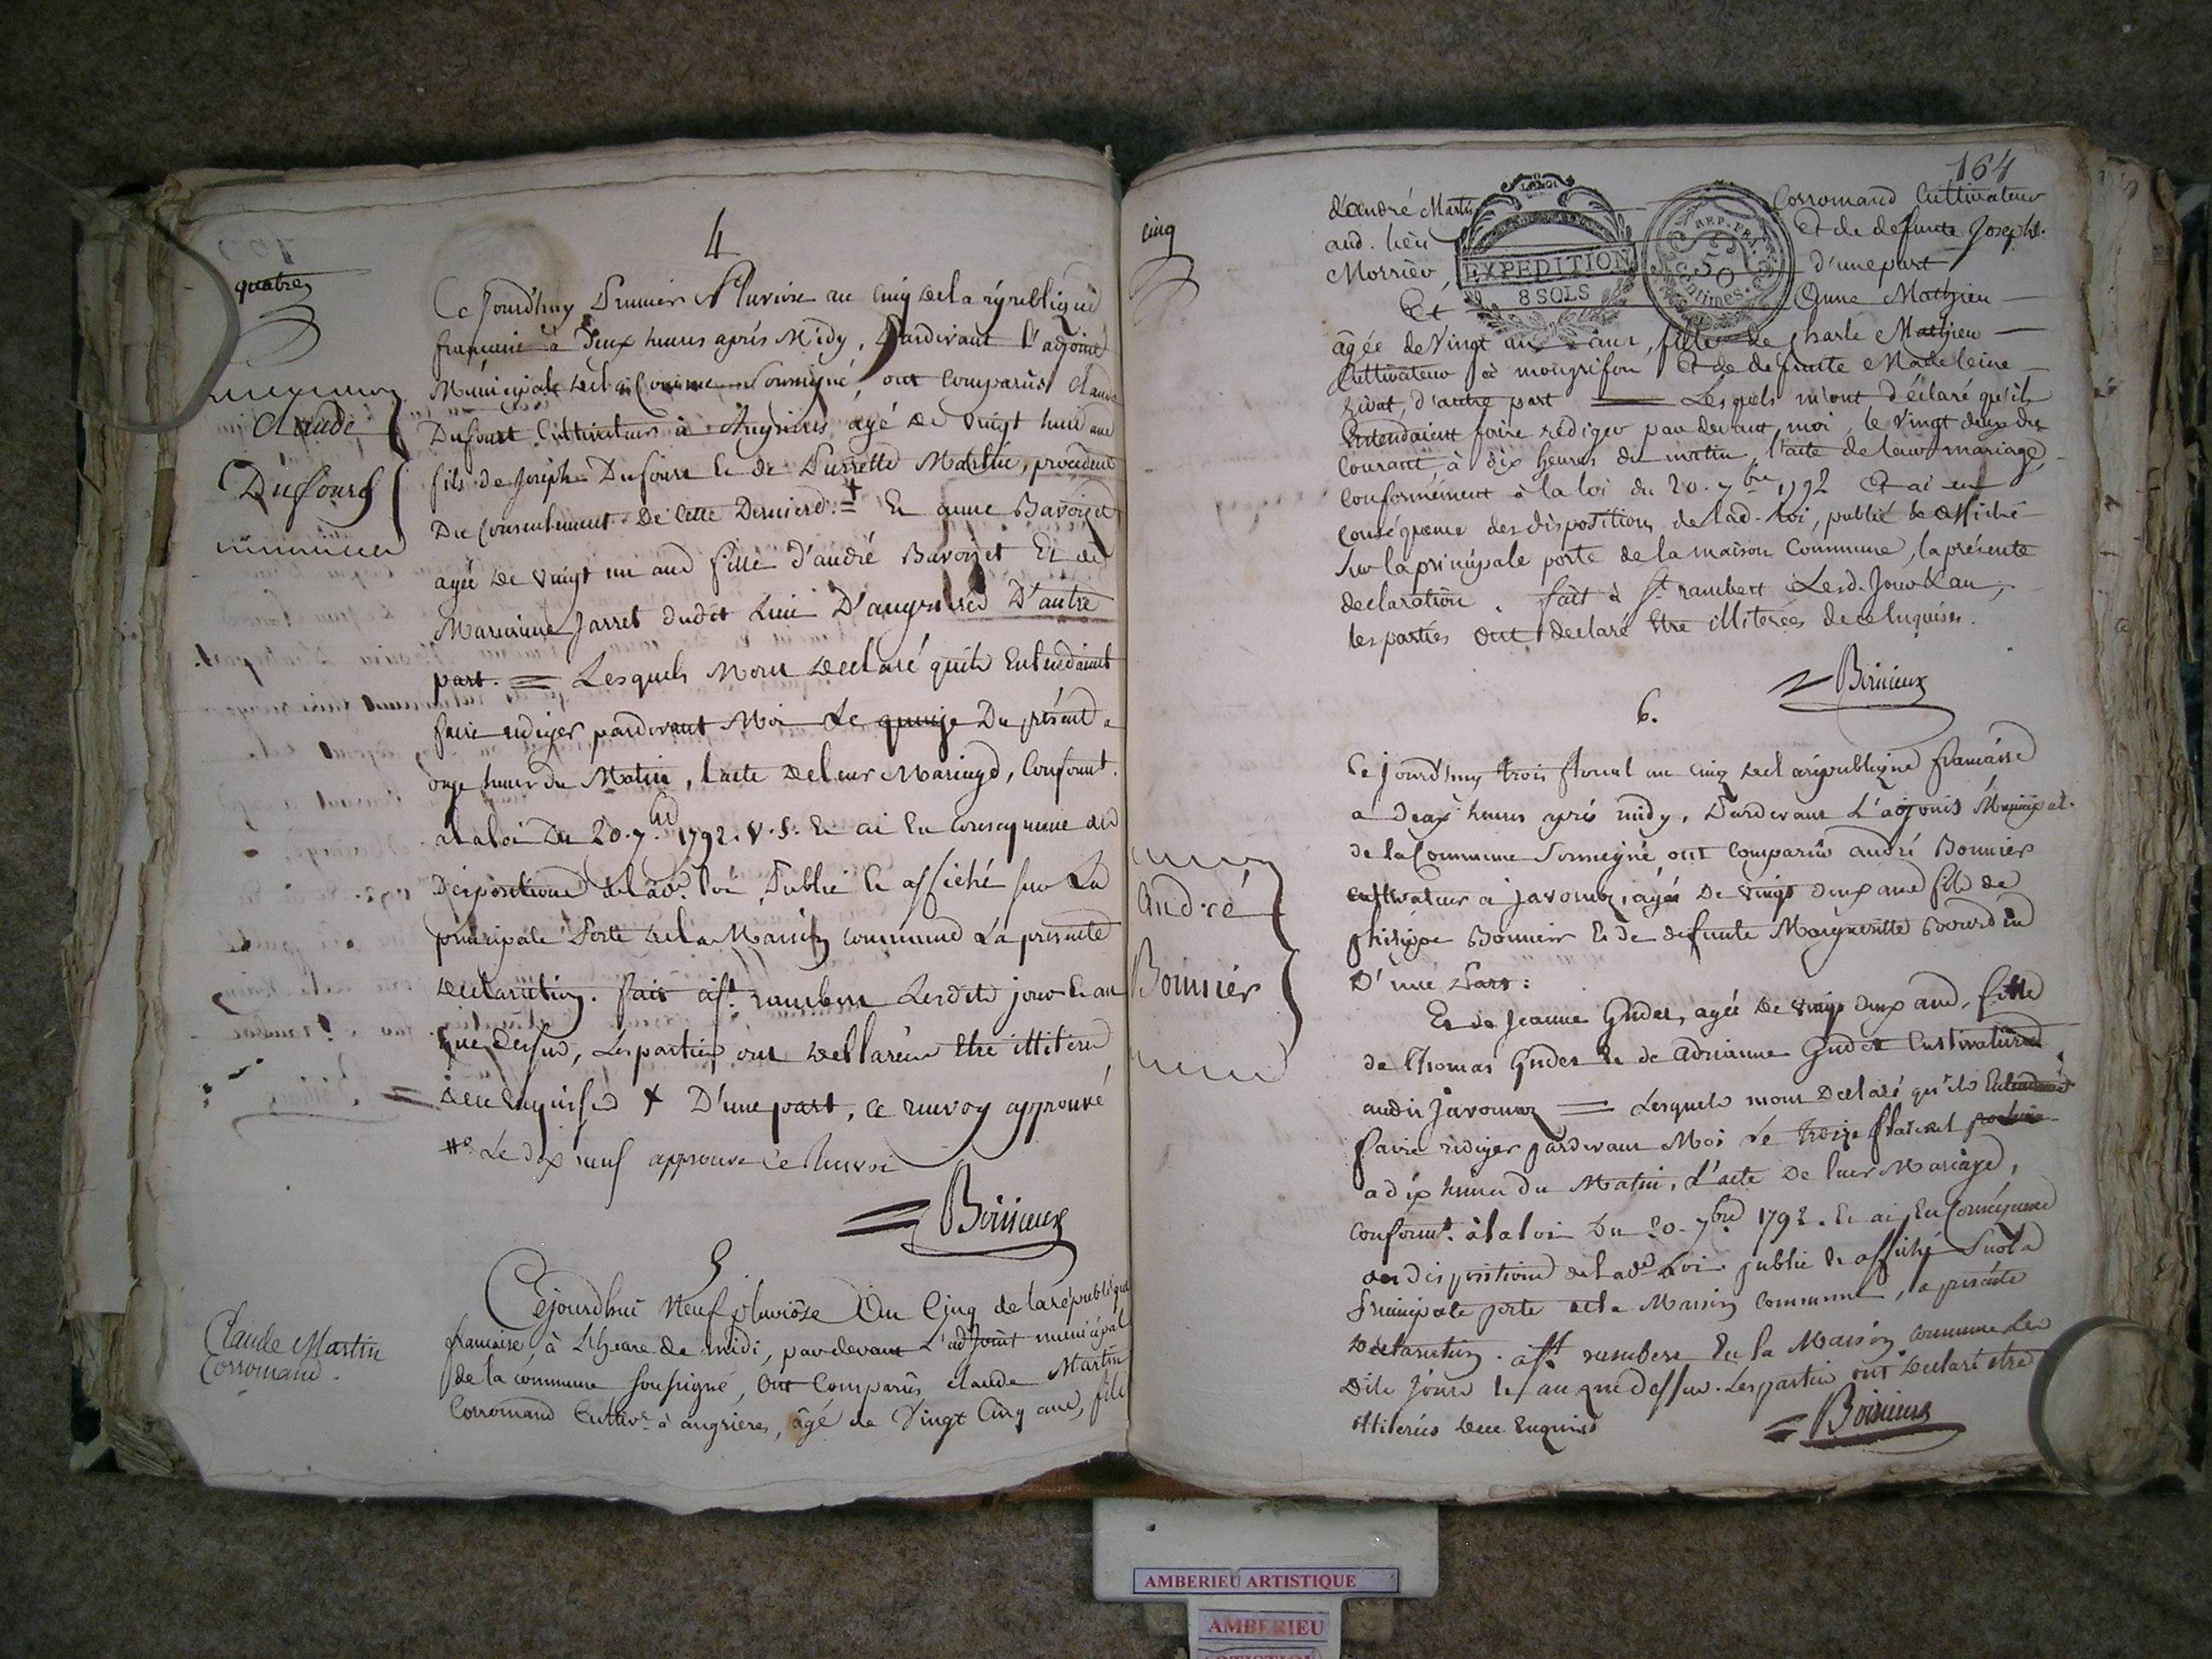 4
quatre
Claude
Dufour
Ce jourd'huy Premier Pluviose an cinq de la république
francaise à deux heures aprés Midy, Pardevant l'adjoint
Municipale de la Commune Soussigné, ont comparus Claude
Dufour Cultivateur à Angrieres agé de vingt huit ans
fils de Joseph Dufour et de Pierrette Martin, procedant
Du consentement De cette Derniere. + Et anne Bavozet
agée de vingt un ans fille d'andré Bavozet Et de
Marianne Jarret dudit Lieu D'angrieres D'autre
part. = Lesquels Mont declaré quils Entendaient
faire rediger pardevant Moi Le quinze Du présent a
onze heures du Matin, l'acte de leur Mariage, Conformt.
a la loi Du 20. 7bre 1792. V. S. Et ai En consequence des
Dispositions de lad. loi Publié et affiché sur La
principale Porte de la Maison commune La presente
declaration. fait a St. rambert Lesdits jour et an
que dessus, Les parties ont declarées être illiterés
de ce Enquises + D'une part, ce renvoy approuvé
# Le dix neuf approuvé ce Renvoi
= Boisieux
5
Claude Martin
Corromand.
Cejourdhui Neuf pluviôse An Cinq de la république
francaise, à L'heure de midi, pardevant L'adjoint municipal
de la commune soussigné, Ont Comparus claude Martin
Corromand Cultivr. à angrieres, âgé de Vingt Cinq ans, fils
164
cinq
d'andré Martin Corromand Cultivateur
aud. lieu Et de defunte Josephe
Morrier, d'une part
EXPEDITION
8 SOLS
REP. FRA.
50
Centimes.
Et Anne Mathieu
âgée de Vingt un ans, fille de Charle Mathieu
Cultivateur à mongrifon Et de defunte Madeleine
rivat, d'autre part = Lesquels m'ont déclaré qu'ils
Entendaient faire rédiger par devant moi, le vingt deux du
Courant à dix heures du matin, l'acte de leur mariage,
Conformément à la loi du 20. 7bre 1792 Et ai en
conséquence des dispositions de lad. loi, publié & affiché
sur la principale porte de la maison Commune, la présente
declaration. fait à St. rambert Lesd. Jour & an,
les parties ont déclaré être illiterées de ce Enquises.
= Boisieux
6.
André
Bonnier
Ce jourd'huy trois floreal an cinq de la république francaise
a deux heures aprés midy, Pardevant L'adjoint Municipal
de la Commune Soussigné ont comparus andré Bonnier
cultivateur a Javornoz, agé De vingt deux ans fils de
philippe Bonnier et de defunte Margueritte Bourdin
D'une Part:
Et de Jeanne Gudet, agée de vingt deux ans, fille
de Thomas Gudet et de adrianne Gudet Cultivateurs
audit Javornoz = Lesquels mont Déclaré qu'ils Entendaient
faire rediger pardevant Moi Le treize floreal prochain
a dix heures du Matin, L'acte De leur Mariage,
Conformt. à la loi Du 20. 7bre 1792. Et ai En Conséquence
des dispositions de lad. Loi publié et affiché Sur la
Principale porte de la Maison Commune, la presente
Declaration. a St. rambert En la Maison commune Les
Dits Jour et an que dessus. Les parties ont declaré etre
illiterés de ce Enquis
= Boisieux
AMBERIEU ARTISTIQUE
AMBERIEU
ARTISTIQUE